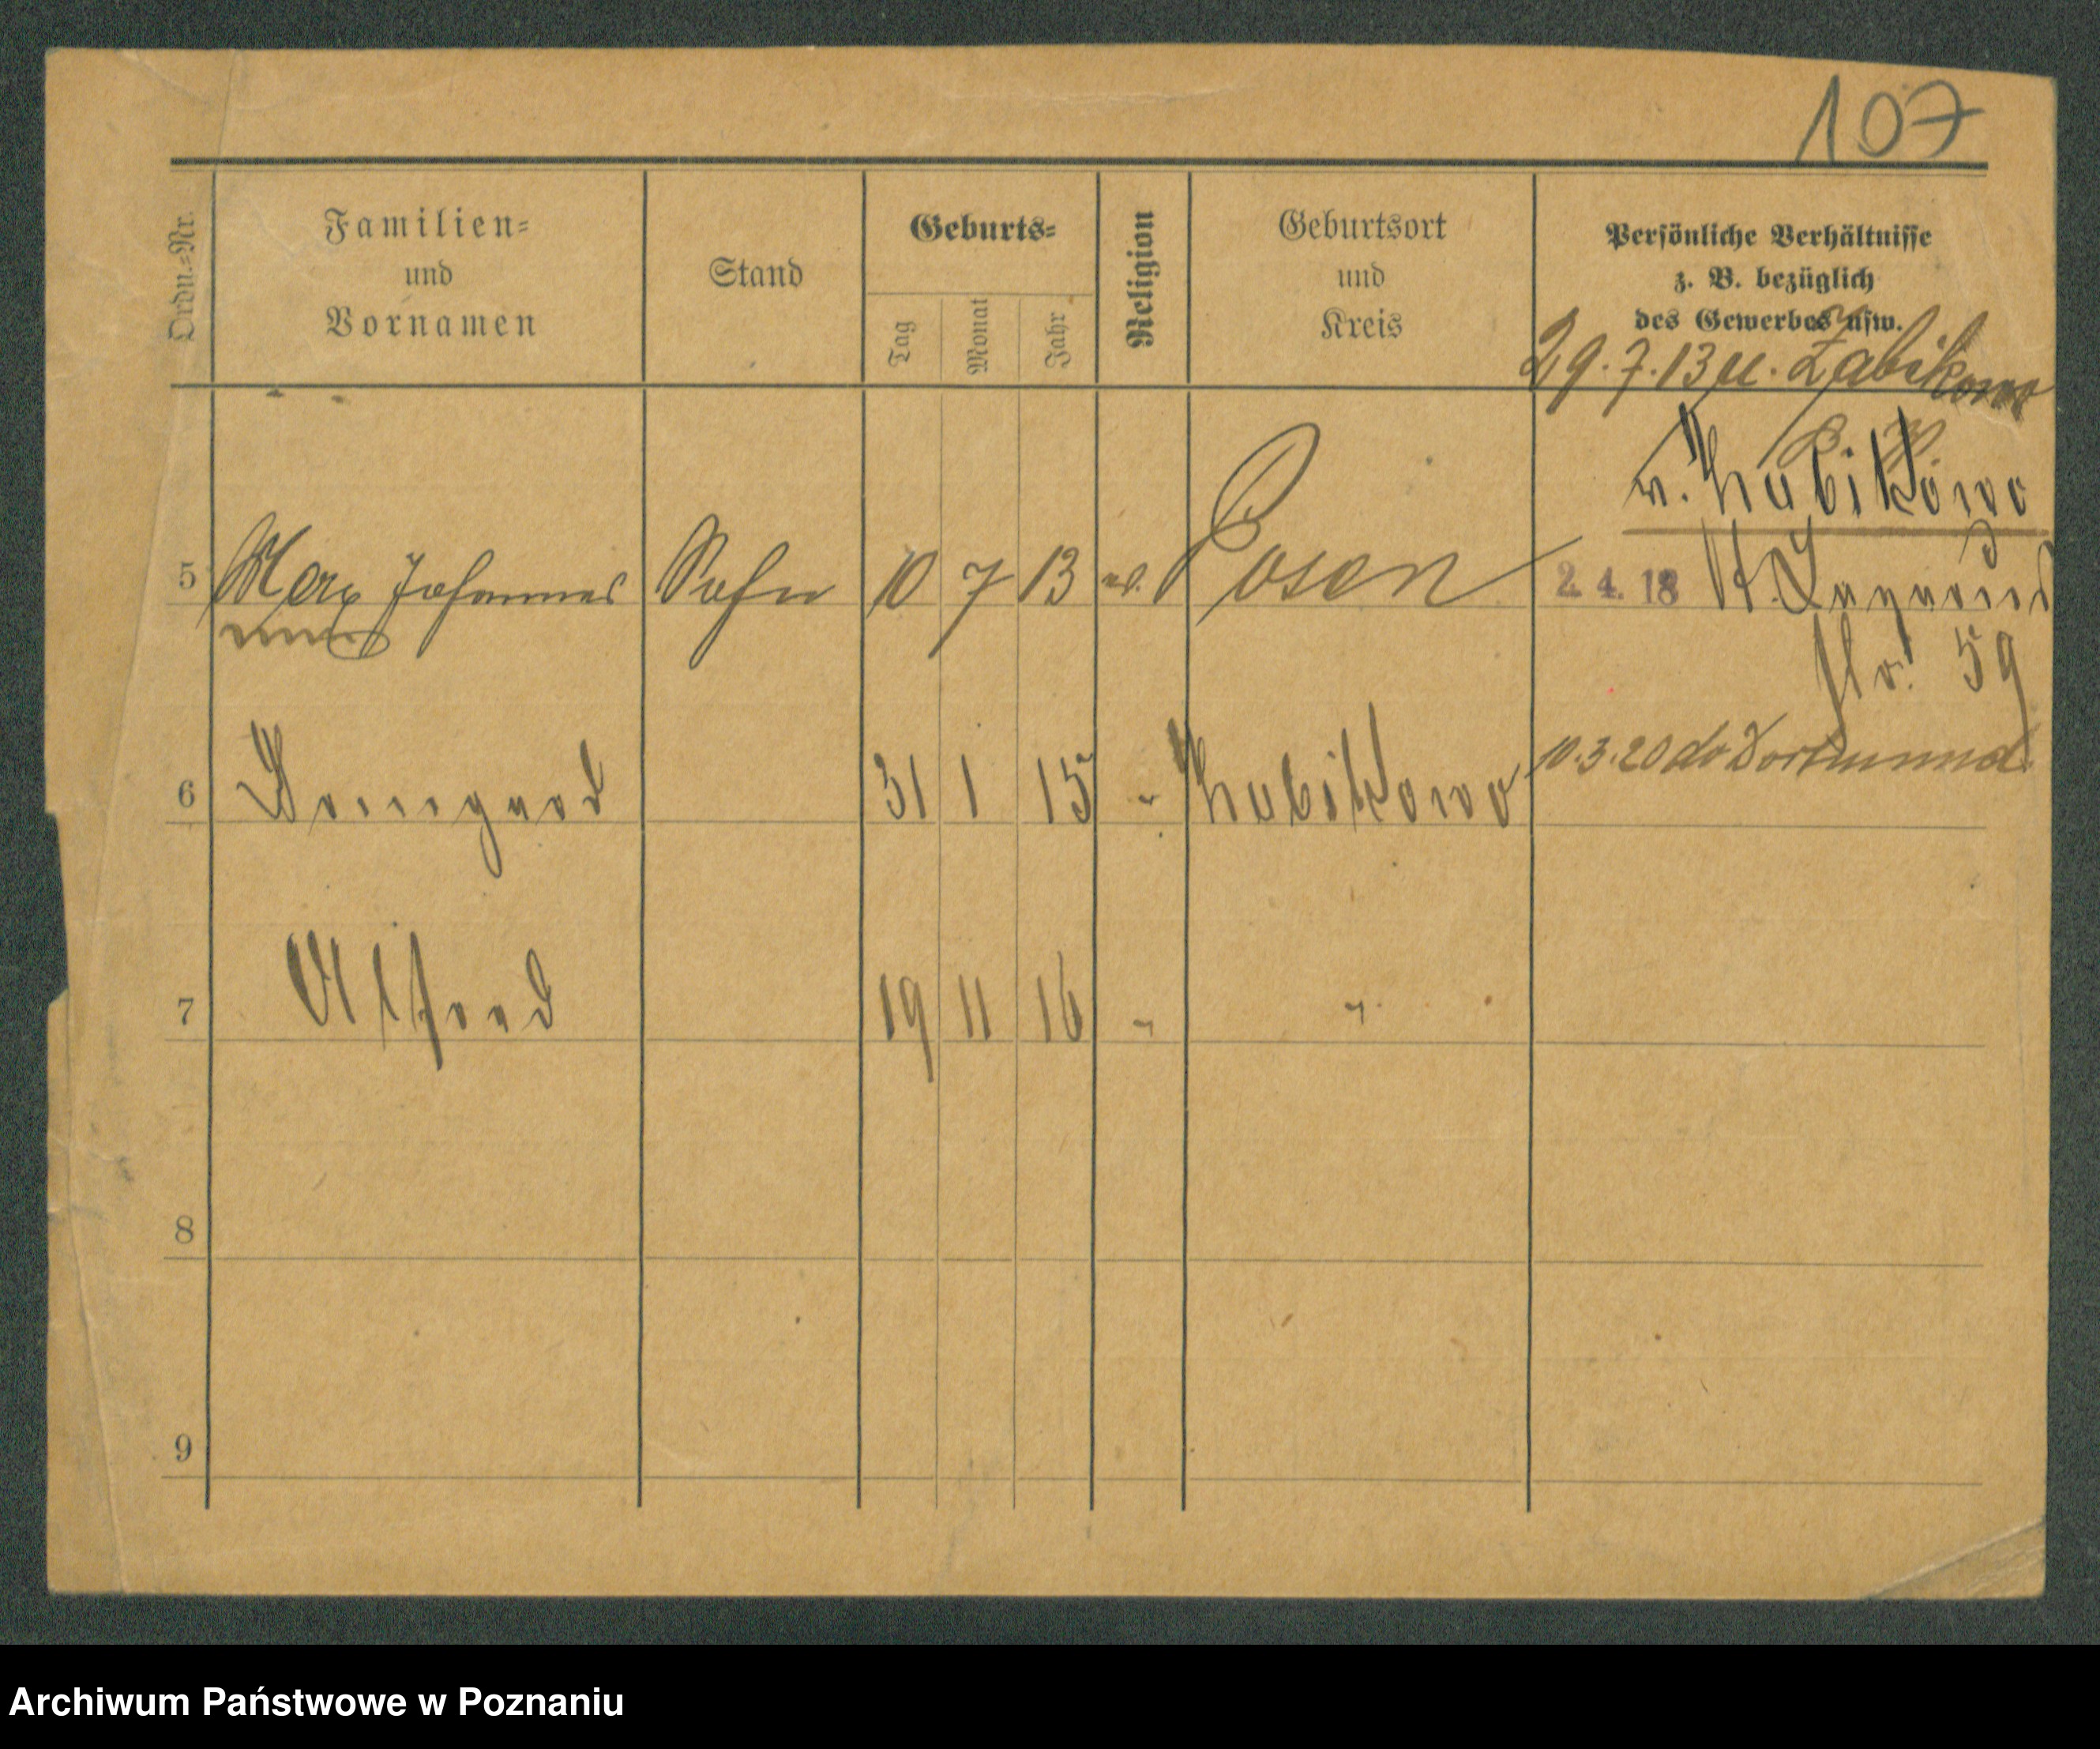 107
Ordn.-Nr.
Familien-
und
Vornamen
Stand
Geburts-
Tag
Monat
Jahr
Religion
Geburtsort
und
Kreis
Persönliche Verhältnisse
z. B. bezüglich
des Gewerbes usw.
29. 7. 13 n. Zabikowo
v. Zabikowo
5 Max Johannes Sohn 10 7 13 ev. Posen
2. 4. 18
str. 59
6 Irmgard 31 1 15 " Zabikowo
10.3.20 do Dortmund
7 Alfred 19 11 16 " "
8
9
Archiwum Państwowe w Poznaniu